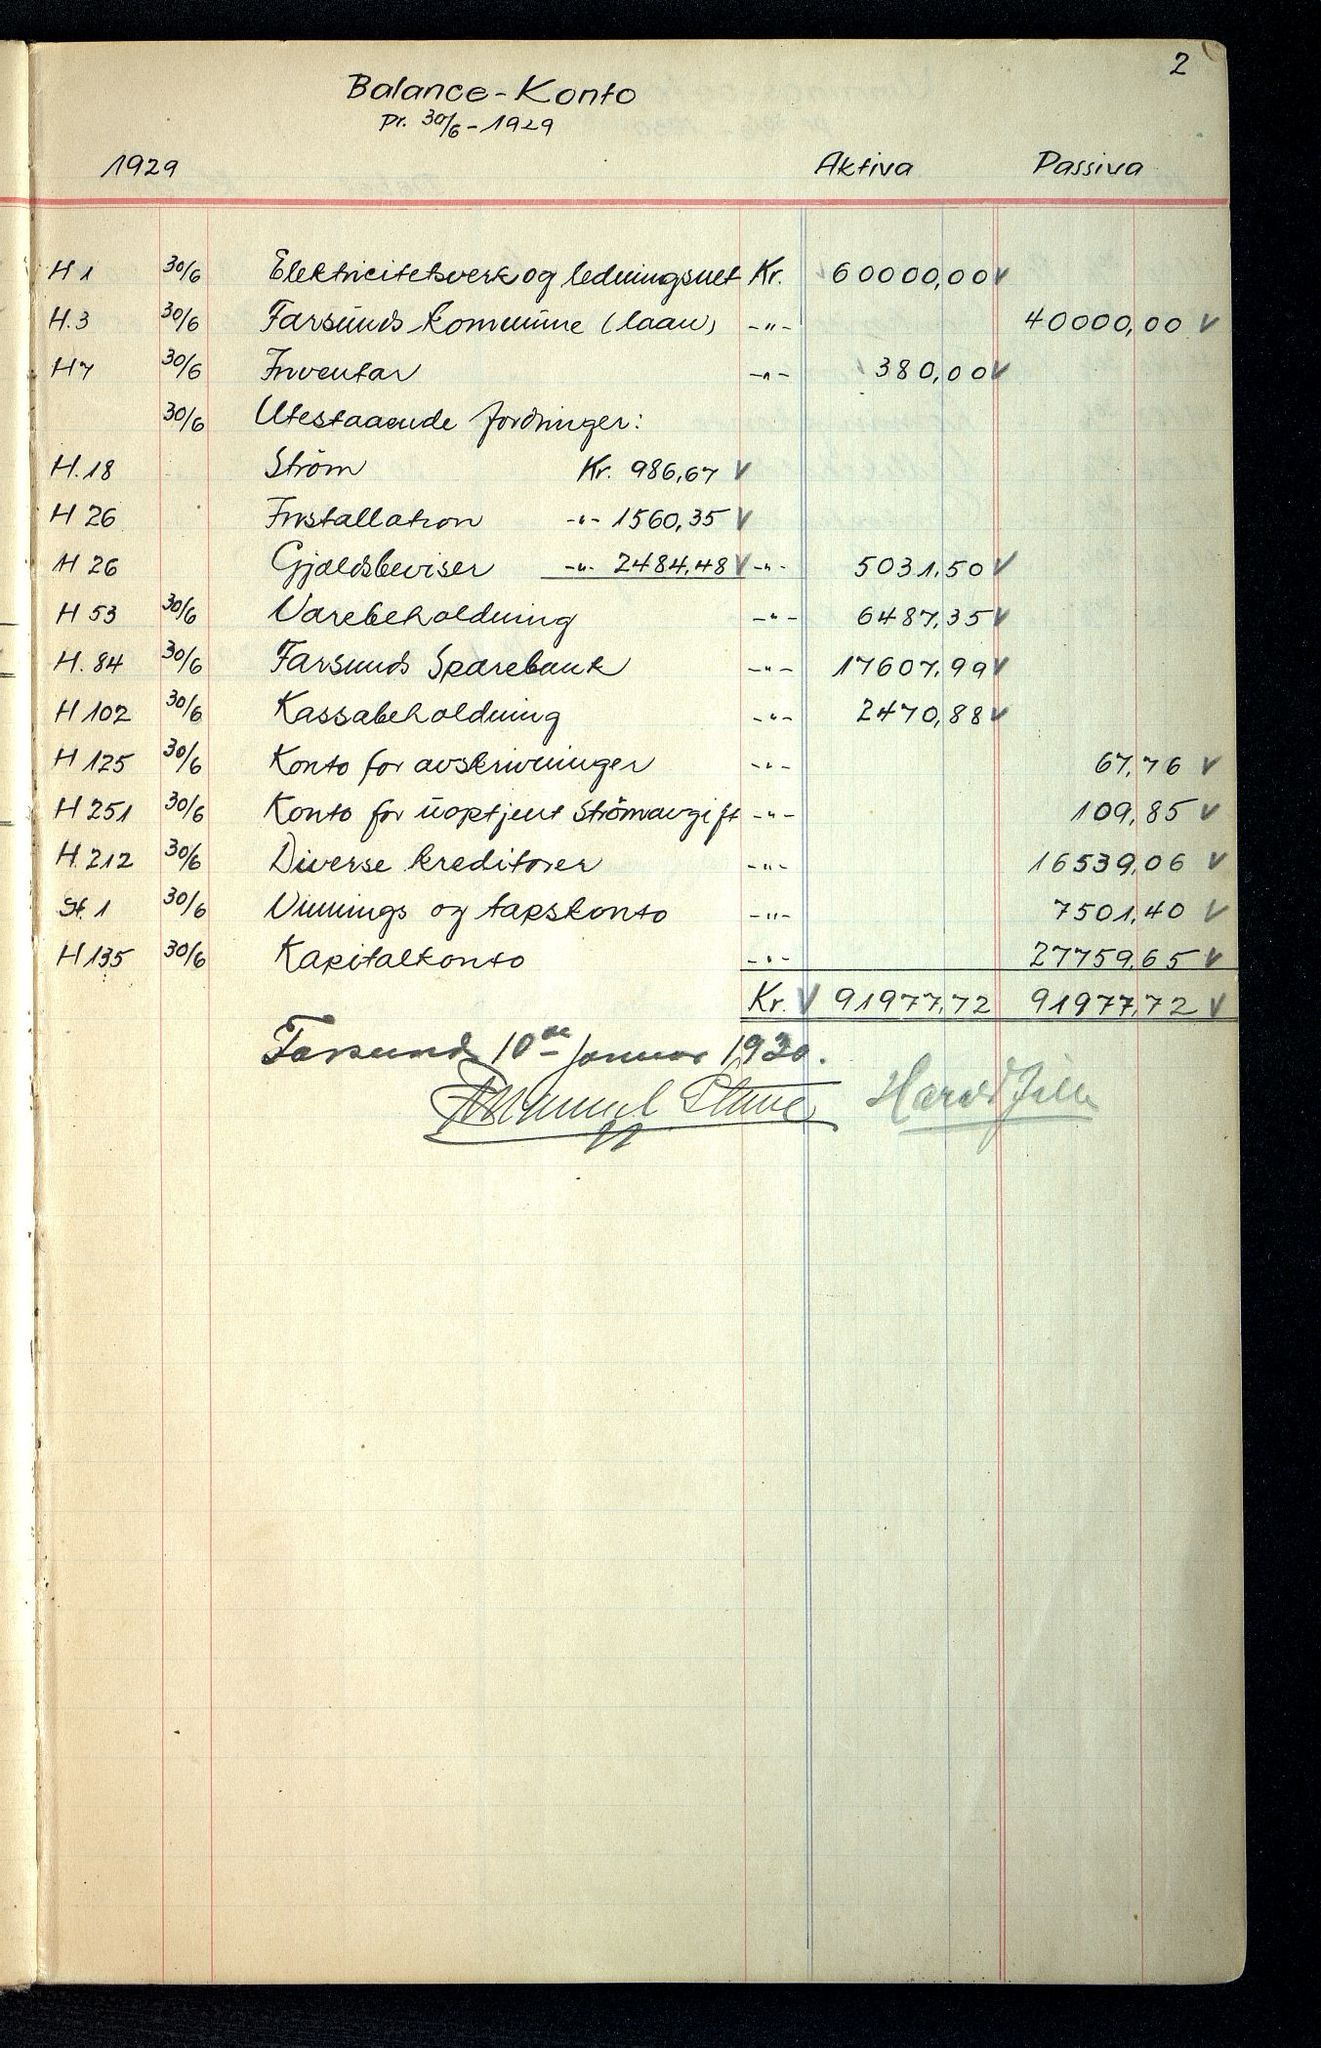 2
Balance-Konto
Pr. 30/6-1929
1929 Aktiva Passiva
H 1 30/6 Elektricitetsverk og ledningsnet Kr. 60000,00 V
H.3 30/6 Farsunds kommune (laan) -"- 40000,00 V
H 7 30/6 Inventar -"- 380,00 V
30/6 Utestaaende fordringer:
H.18 Ström Kr. 986,67 V
H 26 Installation -"- 1560,35 V
H 26 Gjældsbeviser -"- 2484,48 V -"- 5031,50 V
H 53 30/6 Varebeholdning -"- 6487,35 V
H.84 30/6 Farsunds Sparebank -"- 17607,99 V
H 102 30/6 Kassabeholdning -"- 2470,88 V
H 125 30/6 Konto for avskrivninger -"- 67,76 V
H 251 30/6 Konto for uoptjent Strömavgift -"- 109,85 V
H.212 30/6 Diverse kreditorer -"- 16539,06 V
St. 1 30/6 Vinnings og tapskonto -"- 7501,40 V
H 135 30/6 Kapitalkonto -"- 27759,65 V
Kr. V 91977,72 91977,72 V
Farsund 10de januar 1930.
Harald